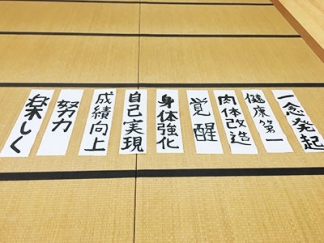 一念発起
健康第一
肉体改造
覚醒
身体強化
自己実現
成績向上
努力
楽しく